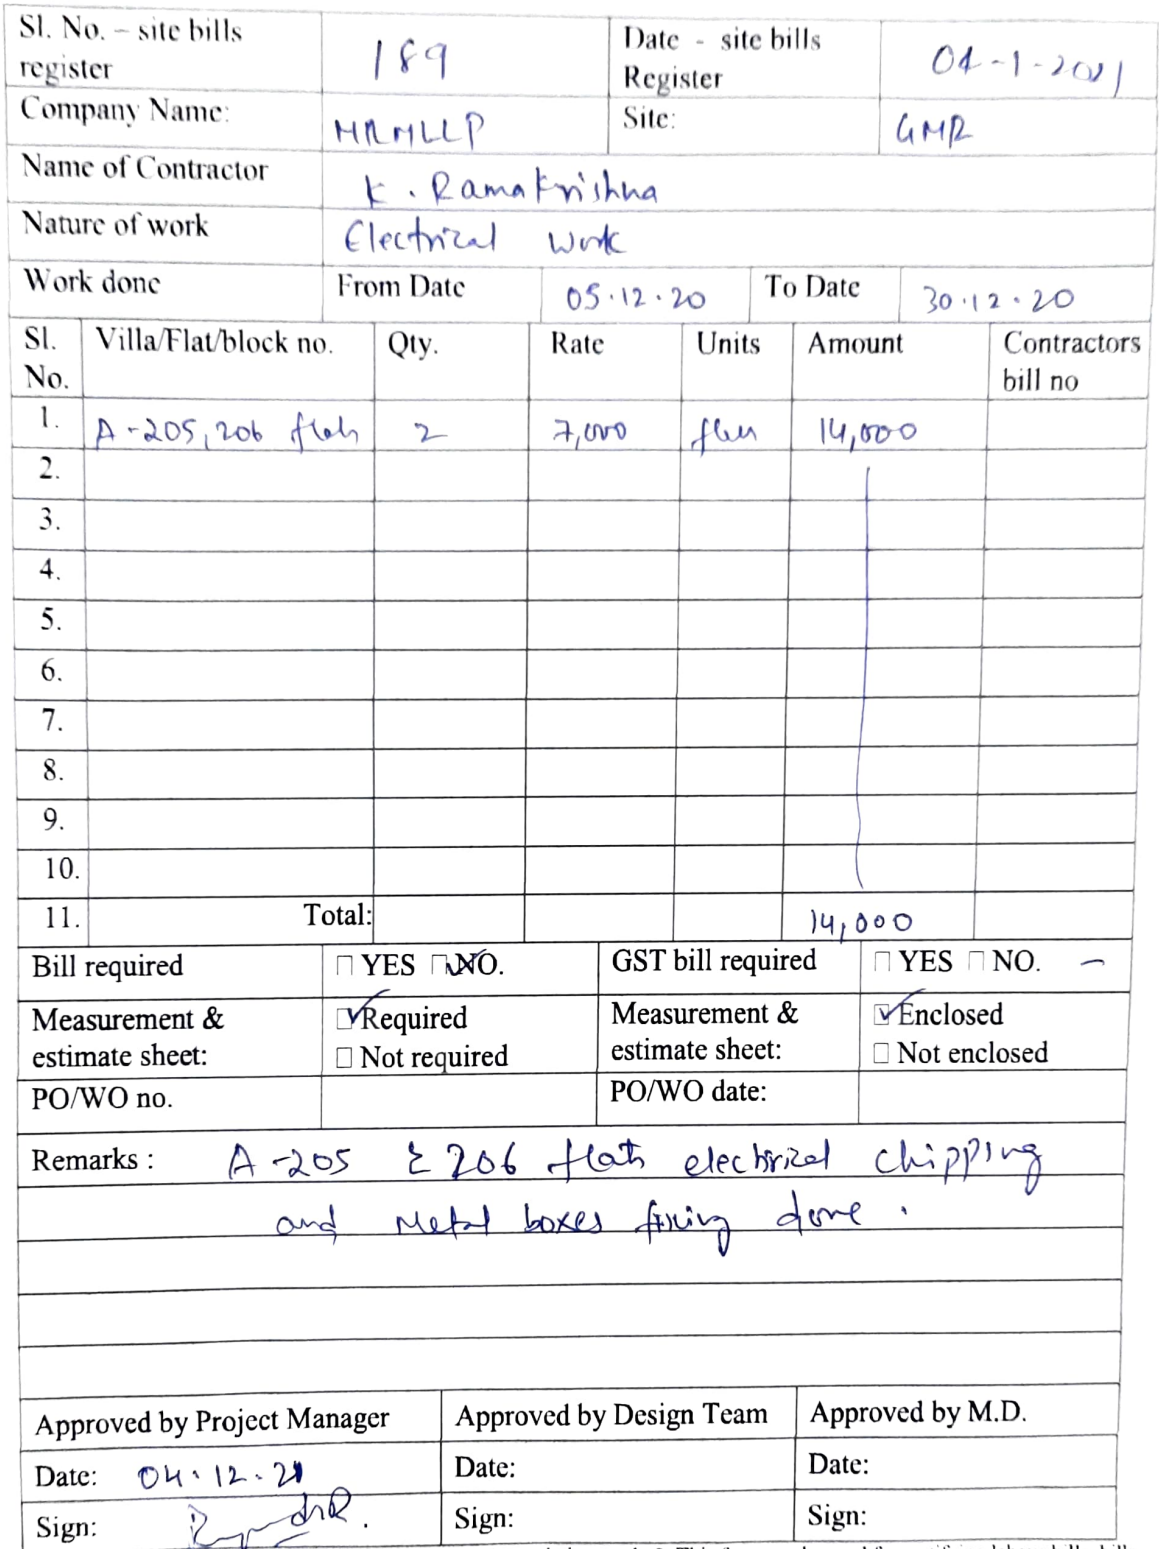 Sl. No. – site bills register 189 Date - site bills Register 04-1-2021
Company Name: MRMLLP Site: GMR
Name of Contractor K. Ramakrishna
Nature of work Electrical Work
Work done From Date 05.12.20 To Date 30.12.20
Sl. No. Villa/Flat/block no. Qty. Rate Units Amount Contractors bill no
1. A-205,206 flats 2 7,000 14,000
2.
3.
4.
5.
6.
7.
8.
9.
10.
11. Total: 14,000
Bill required YES NO. GST bill required YES NO. –
Measurement & estimate sheet: Required Measurement & estimate sheet: Enclosed
Not required Not enclosed
PO/WO no. PO/WO date:
Remarks : A-205 & 206 flats electrical chipping
and Metal boxes fixing done.
Approved by Project Manager Approved by Design Team Approved by M.D.
Date: 04.12.21 Date: Date:
Sign: Sign: Sign: